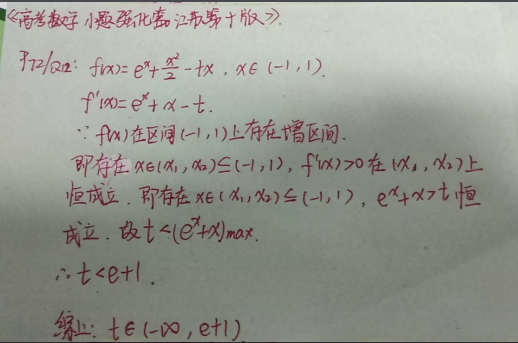 《高考数学小题强化篇江苏第十版》.
P72/Q12: f(x)=e^x+x²/2-tx, x∈(-1,1).
f'(x)=e^x+x-t.
∵ f(x)在区间(-1,1)上存在增区间.
即存在 x∈(x₁,x₂)⊆(-1,1), f'(x)>0 在(x₁,x₂)上
恒成立. 即存在x∈(x₁,x₂)⊆(-1,1), e^x+x>t 恒
成立. 故 t<(e^x+x)max.
∴ t<e+1.
综上: t∈(-∞, e+1)